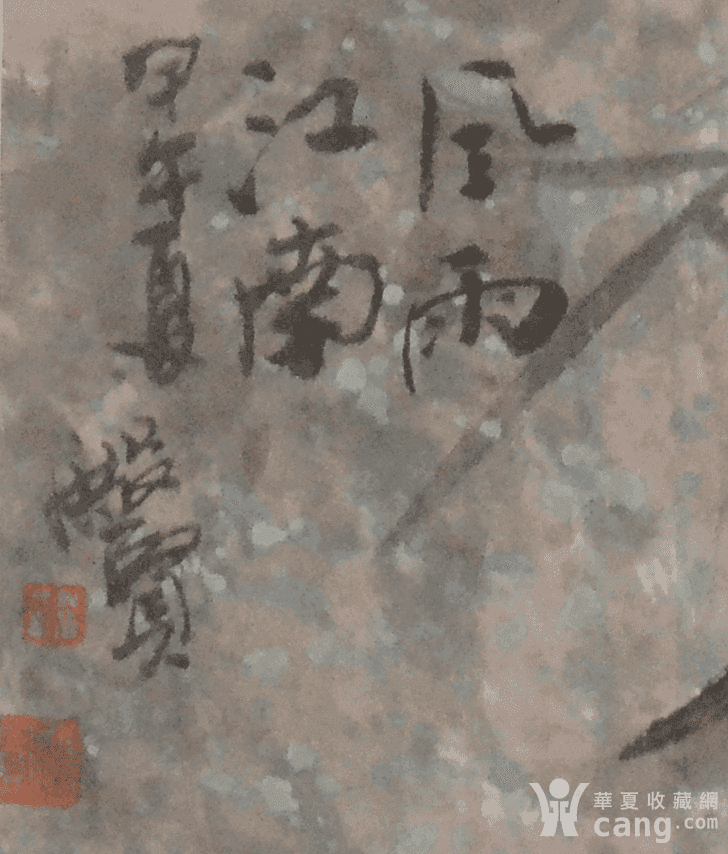 風雨
江南
甲午夏
華夏收藏網
cang.com